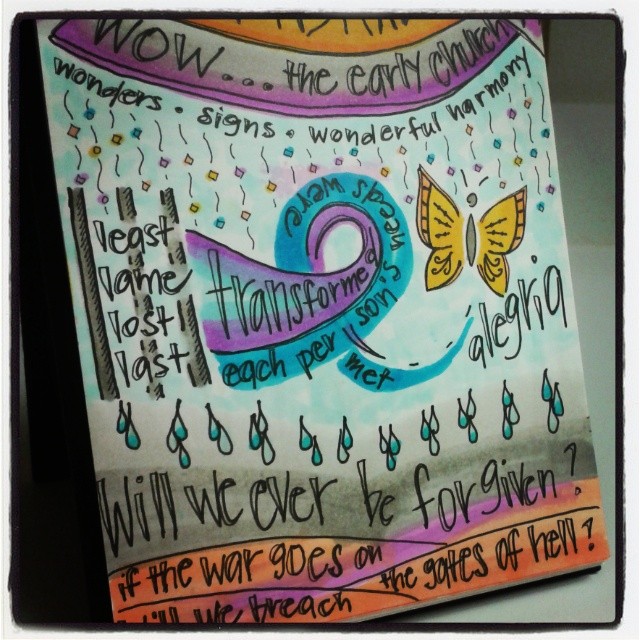 WOW... the early church
wonders. signs. wonderful harmony
least
lame
lost
last
transformed
each person's needs were
met
alegria
Will we ever be forgiven?
if the war goes on
the gates of hell?
will we breach